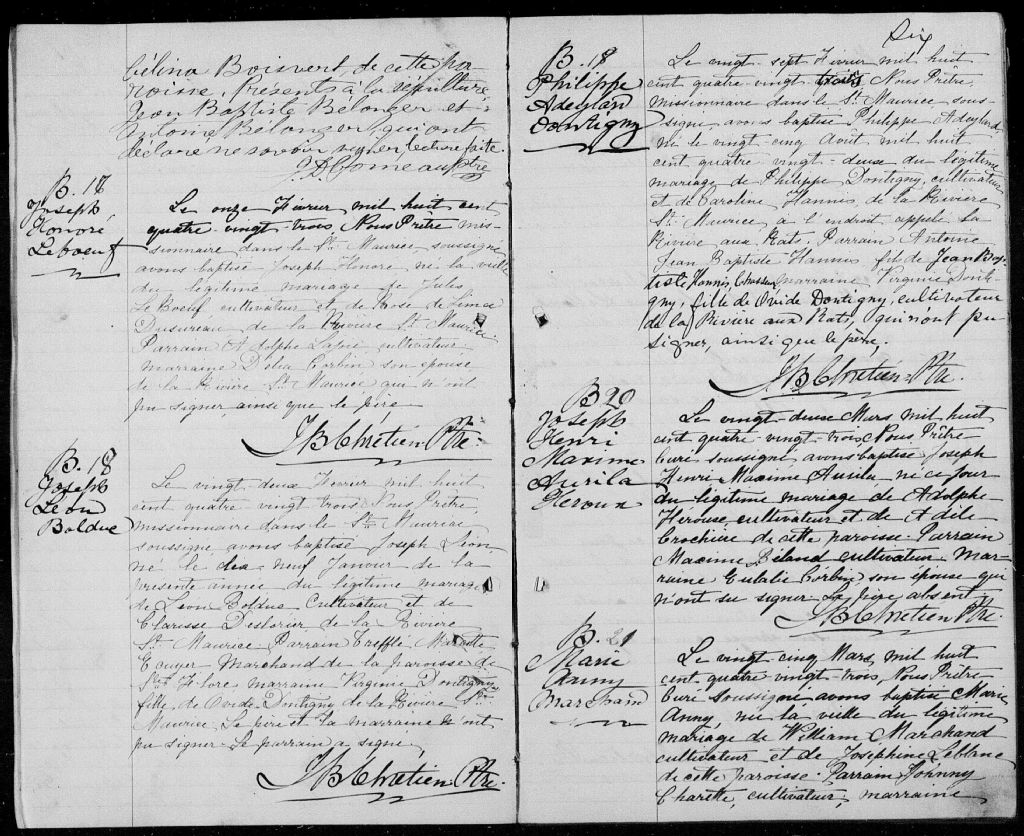 Célina Boisvert, de cette pa-
roisse. Présents à la sépulture
Jean Baptiste Bélanger et
Antoine Bélanger, qui ont
déclaré ne savoir signer, lecture faite
D. Comeau Ptre
B. 18
Joseph
Honoré
Leboeuf
Le onze Février mil huit cent
quatre vingt trois, Nous Prêtre mis-
sionnaire dans le St. Maurice soussigné
avons baptisé Joseph Honore, né la veille
du légitime mariage de Jules
Le Boeuf cultivateur et de Rose de Lima
Dusureau de la Rivière St. Maurice
Parrain Adolphe Lapié cultivateur
marraine Délia Corbin son épouse
de la Rivière St. Maurice qui n'ont
pu signer ainsi que le père
JB Chrétien Ptre.
B. 18
Joseph
Léon
Bolduc
Le vingt-deux Fevrier mil huit
cent quatre vingt trois Nous Prêtre
missionnaire dans le St. Maurice
soussigné avons baptisé Joseph Léon
né le dix neuf Janvier de la
présente année du légitime mariage
de Léon Bolduc Cultivateur et de
Clarisse Desforier de la Rivière
St. Maurice Parrain Trefflé
Ecuyer Marchand de la paroisse de
Ste Flore, marraine Virginie Dontigny
fille, de Ovide Dontigny de la Rivière St.
Maurice. Le père et la marraine n'ont
pu signer. Le parrain a signé
JB Chrétien Ptre.
Six
B. 18
Philippe
Adeylard
Dontigny
Le vingt-sept Février mil huit
cent quatre-vingt trois Nous Prêtre
missionnaire dans le St. Maurice sous-
signé avons baptisé Philippe Adeylard
né le vingt cinq Août mil huit
cent quatre vingt-deux du légitime
mariage de Philippe Dontigny, cultivateur
et de Caroline Hannis, de la Rivière
St. Maurice à l'endroit appelé La
Rivière aux Rats. Parrain Antoine
Jean Baptiste Hannis fils de Jean Bap
tiste Hannis, Chasseur, marraine Virginie Donti-
gny, fille de Ovide Dontigny, cultivateur
de la Rivière aux Rats, qui n'ont pu
signer, ainsi que le père.
JB Chrétien Ptre.
B 20
Joseph
Henri
Maxime
Aurila
Héroux
Le vingt-deux Mars mil huit
cent quatre-vingt-trois, Nous Prêtre
Curé soussigné avons baptisé Joseph
Henri Maxime Aurila né ce jour
du légitime mariage de Adolphe
Hérouse, cultivateur et de Adèle
Brochière de cette paroisse. Parrain
Maxime Béland cultivateur Mar-
raine Eulalie Corbin son épouse qui
n'ont su signer. Le père absent.
JB Chrétien Ptre.
B. 21
Marie
Anny
Marchand
Le vingt cinq Mars, mil huit
cent quatre-vingt-trois, Nous Prêtre
Curé soussigné, avons baptisé Marie
Anny, née la veille du légitime
mariage de William Marchand
cultivateur et de Joséphine Leblanc
de cette paroisse. Parrain Johnny
Charette, cultivateur, marraine